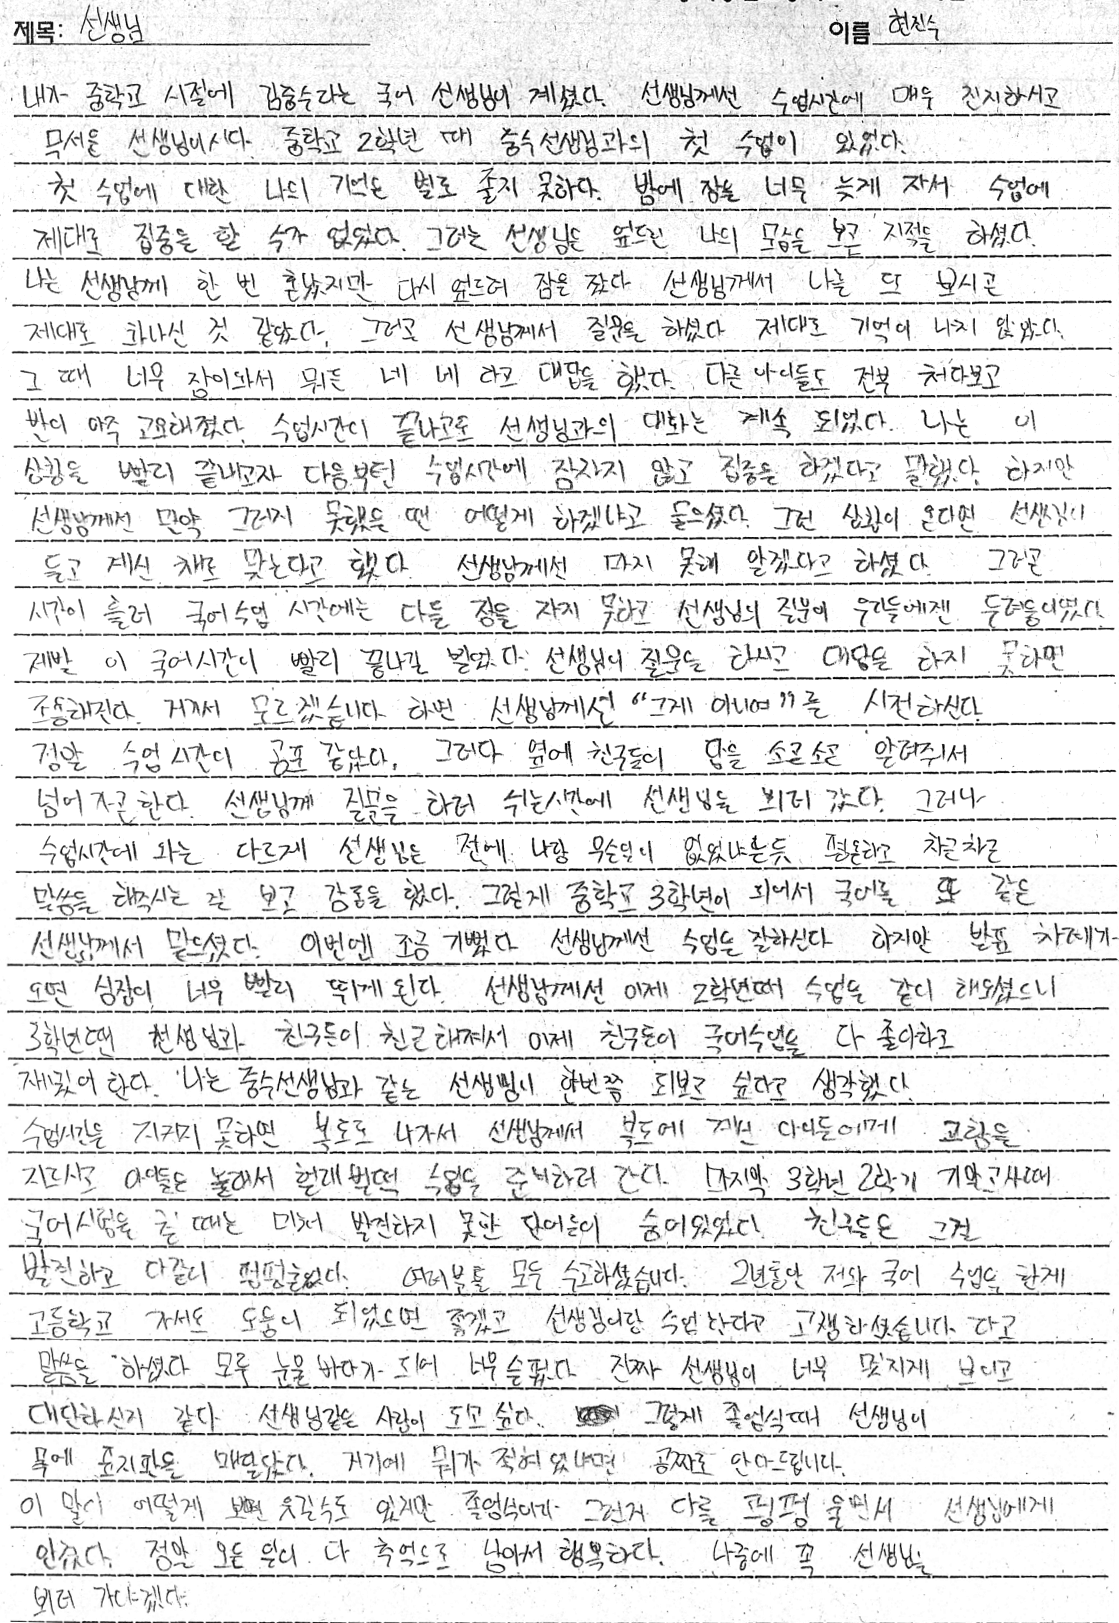 제목: 선생님 이름 현진수
내가 중학교 시절에 김중수라는 국어 선생님이 계셨다. 선생님께선 수업시간에 매우 진지하시고
무서운 선생님이시다. 중학교 2학년 때 중수선생님과의 첫 수업이 있었다.
첫 수업에 대한 나의 기억은 별로 좋지 못하다. 밤에 잠을 너무 늦게 자서 수업에
제대로 집중을 할 수가 없었다. 그러는 선생님은 엎드린 나의 모습을 보곤 지적을 하셨다.
나는 선생님께 한 번 혼났지만 다시 엎드려 잠을 잤다 선생님께서 나를 또 보시곤
제대로 화나신 것 같았다. 그러곤 선생님께서 질문을 하셨다 제대로 기억이 나지 않았다.
그 때 너무 잠이와서 뭐든 네 네 라고 대답을 했다. 다른 아이들도 전부 쳐다보고
반이 아주 고요해졌다. 수업시간이 끝나고도 선생님과의 대화는 계속 되었다. 나는 이
상황을 빨리 끝내고자 다음부턴 수업시간에 잠자지 않고 집중을 하겠다고 말했다. 하지만
선생님께선 만약 그러지 못했을 땐 어떻게 하겠냐고 물으셨다. 그런 상황이 온다면 선생님이
들고 계신 채로 맞는다고 했다 선생님께선 마지 못해 알겠다고 하셨다. 그러곤
시간이 흘러 국어수업 시간에는 다들 잠을 자지 못하고 선생님의 질문이 우리들에겐 두려움이였다.
제발 이 국어시간이 빨리 끝나길 빌었다. 선생님이 질문을 하시고 대답을 하지 못하면
조용해진다. 거기서 모르겠습니다 하면 선생님께선 "그게 아니여"를 시전하신다.
정말 수업시간이 공포 같았다. 그러다 옆에 친구들이 답을 소곤소곤 알려줘서
넘어가곤한다. 선생님께 질문을 하러 쉬는시간에 선생님을 뵈러 갔다. 그러나
수업시간에 와는 다르게 선생님은 전에 나랑 무슨일이 없었냐는듯 평온하고 차근차근
말씀을 해주시는 걸 보고 감동을 했다. 그렇게 중학교 3학년이 되어서 국어를 또 같은
선생님께서 맡으셨다. 이번엔 조금 기뻤다 선생님께선 수업을 잘하신다 하지만 발표 차례가
오면 심장이 너무 빨리 뛰게 된다. 선생님께선 이제 2학년때 수업을 같이 해오셨으니
3학년땐 선생님과 친구들이 친근해져서 이제 친구들이 국어수업을 다 좋아하고
재밌어 한다. 나는 중수선생님과 같은 선생님이 한번쯤 되보고 싶다고 생각했다.
수업시간을 지키지 못하면 복도로 나가서 선생님께서 복도에 계신 아이들에게 고함을
지르시고 아이들은 놀래서 헐래벌떡 수업을 준비하러 간다. 마지막 3학년 2학기 기말고사때
국어시험을 칠 때는 미처 발견하지 못한 단어들이 숨어있었다. 친구들은 그걸
발견하고 다같이 펑펑울었다. 여러분들 모두 수고하셨습니다. 2년동안 저와 국어 수업을 한게
고등학교 가서도 도움이 되었으면 좋겠고 선생님이랑 수업 한다고 고생하셨습니다. 라고
말씀을 하셨다 모두 눈물바다가 되어 너무슬펐다 진짜 선생님이 너무 멋지게 보이고
대단하신거 같다 선생님같은 사람이 되고 싶다. 그렇게 졸업식때 선생님이
목에 표지판을 매달았다. 거기에 뭐가 적혀있냐면 공짜로 안아드립니다.
이 말이 어떻게 보면 웃길수도 있지만 졸업식이라 그런지 다들 펑펑 울면서 선생님에게
안겼다. 정말 모든 일이 다 추억으로 남아서 행복하다. 나중에 꼭 선생님을
뵈러 가야겠다.